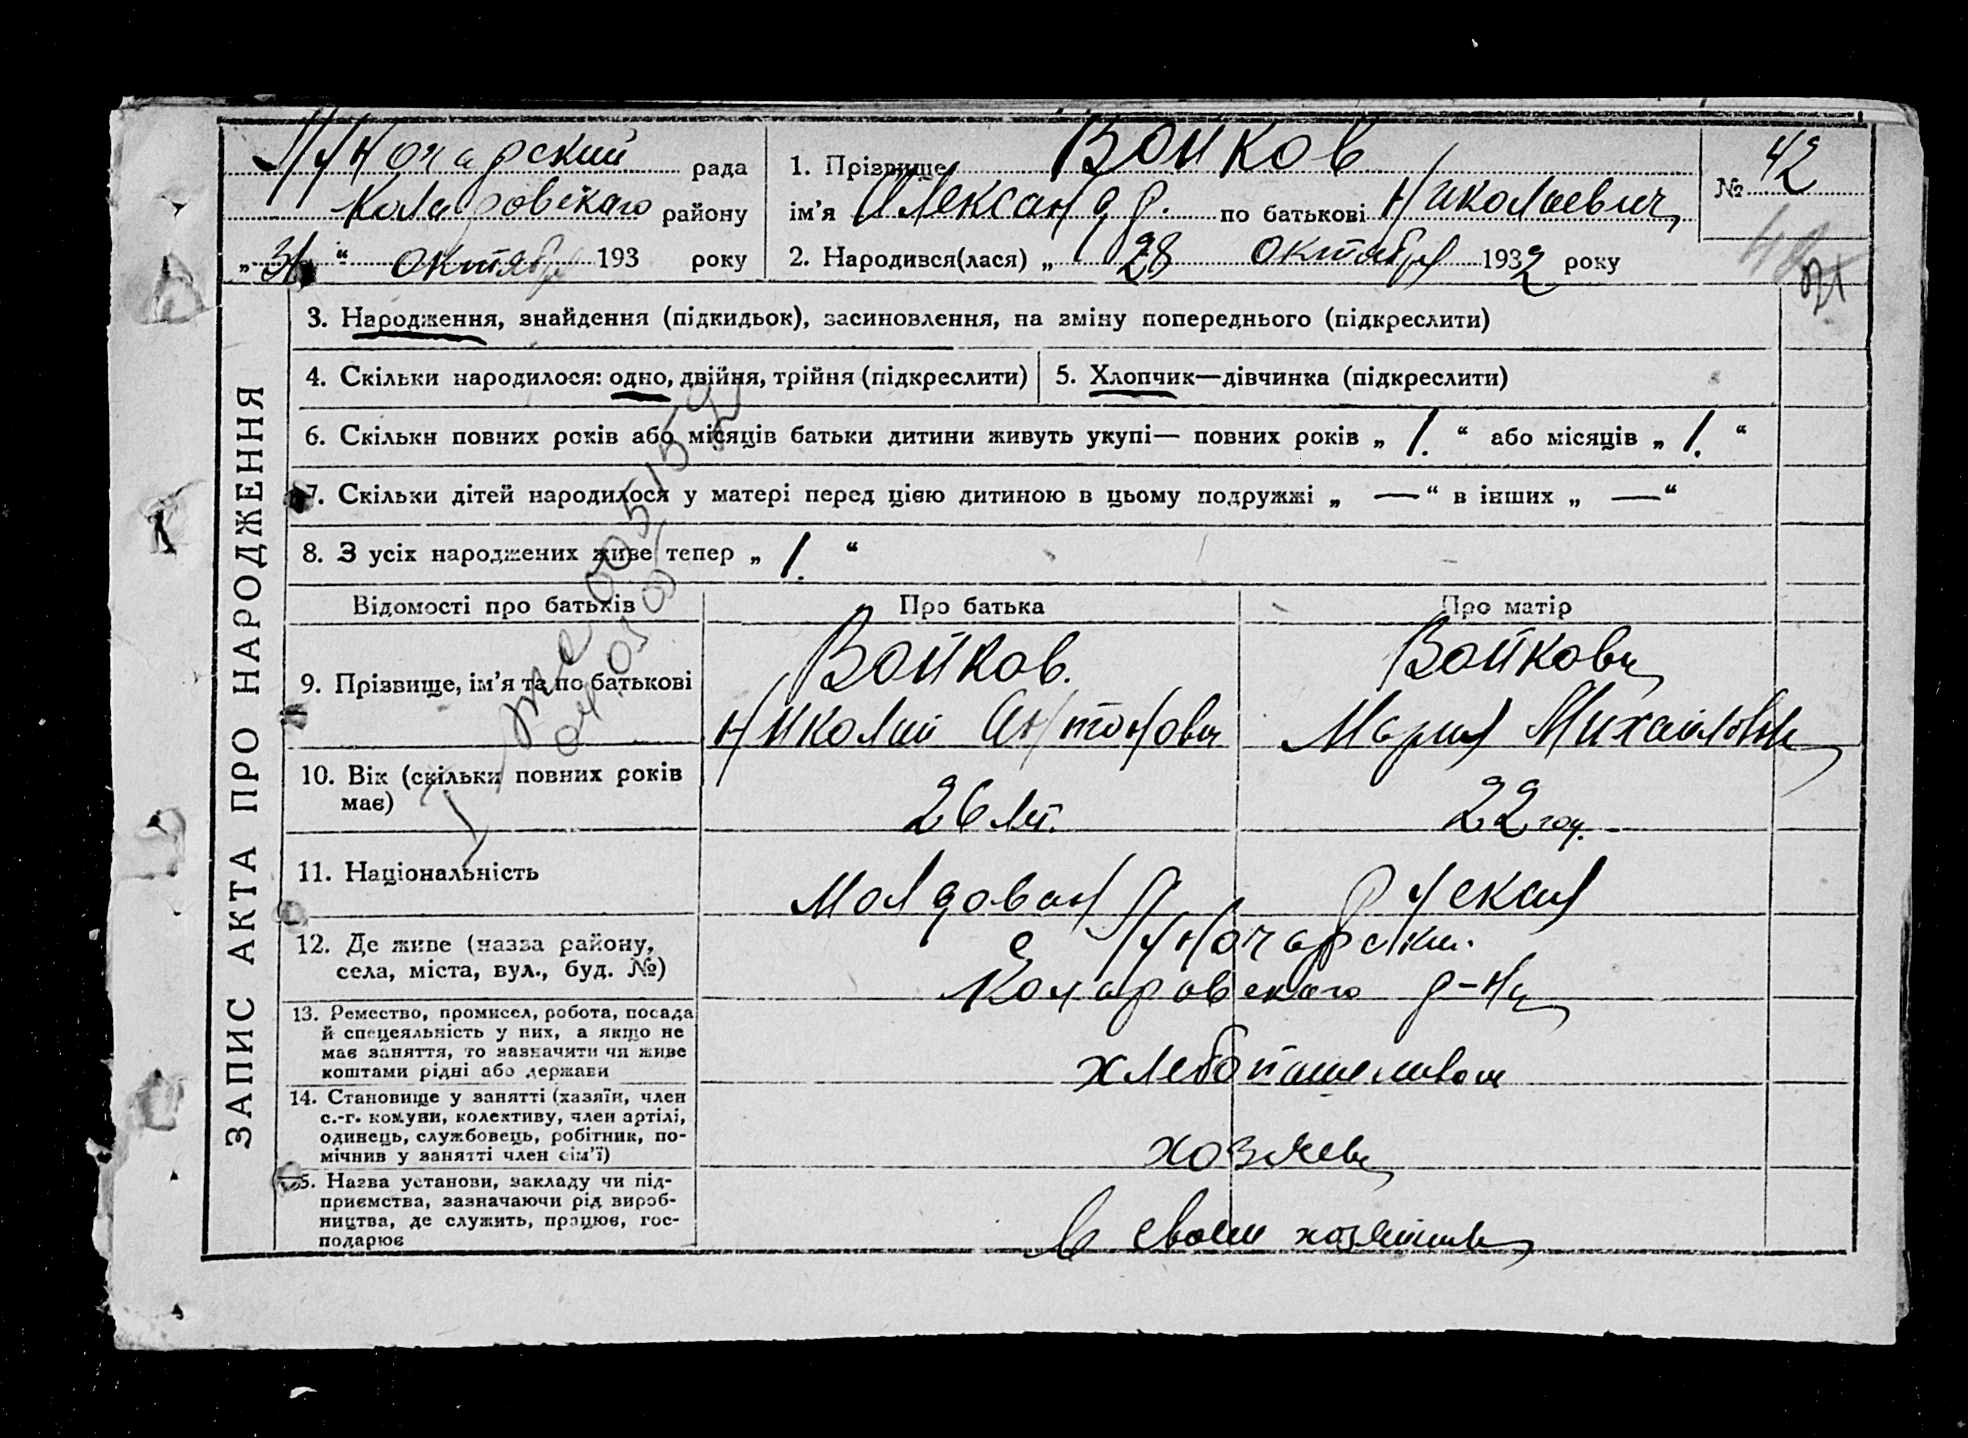 Луночарский рада
Коларовского району
„ 31 “ октября 193 року
1. Прізвище Войков
ім'я Александр. по батькові Николаевич
2. Народився(лася) „ 28 октября 1932 року
№ 42
ЗАПИС АКТА ПРО НАРОДЖЕННЯ
3. Народження, знайдення (підкидьок), засиновлення, на зміну попереднього (підкреслити)
4. Скільки народилося: одно, двійня, трійня (підкреслити)
5. Хлопчик—дівчинка (підкреслити)
6. Скільки повних років або місяців батьки дитини живуть укупі— повних років „ 1. “ або місяців „ 1. “
7. Скільки дітей народилося у матері перед цією дитиною в цьому подружжі „ — “ в інших „ — “
8. З усіх народжених живе тепер „ 1. “
Відомості про батьків
Про батька
Про матір
9. Прізвище, ім'я та по батькові
Войков.
Николай Антонович
Войкова
Мария Михайловна
10. Вік (скільки повних років
має)
26 лет.
22 год.
11. Національність
Молдован
Руская
12. Де живе (назва району,
села, міста, вул., буд. №)
с Луночарский.
Коларовского р-на
13. Ремество, промисел, робота, посада
й спецеяльність у них, а якщо не
має заняття, то зазначити чи живе
коштами рідні або держави
14. Становище у занятті (хазяїн, член
с.-г. комуни, колективу, член артілі,
одинець, службовець, робітник, по-
мічнив у занятті член сім'ї)
хозяева
15. Назва установи, закладу чи під-
приємства, зазначаючи рід вироб-
ництва, де служить, працює, гос-
подарює
в своем хозяйстве